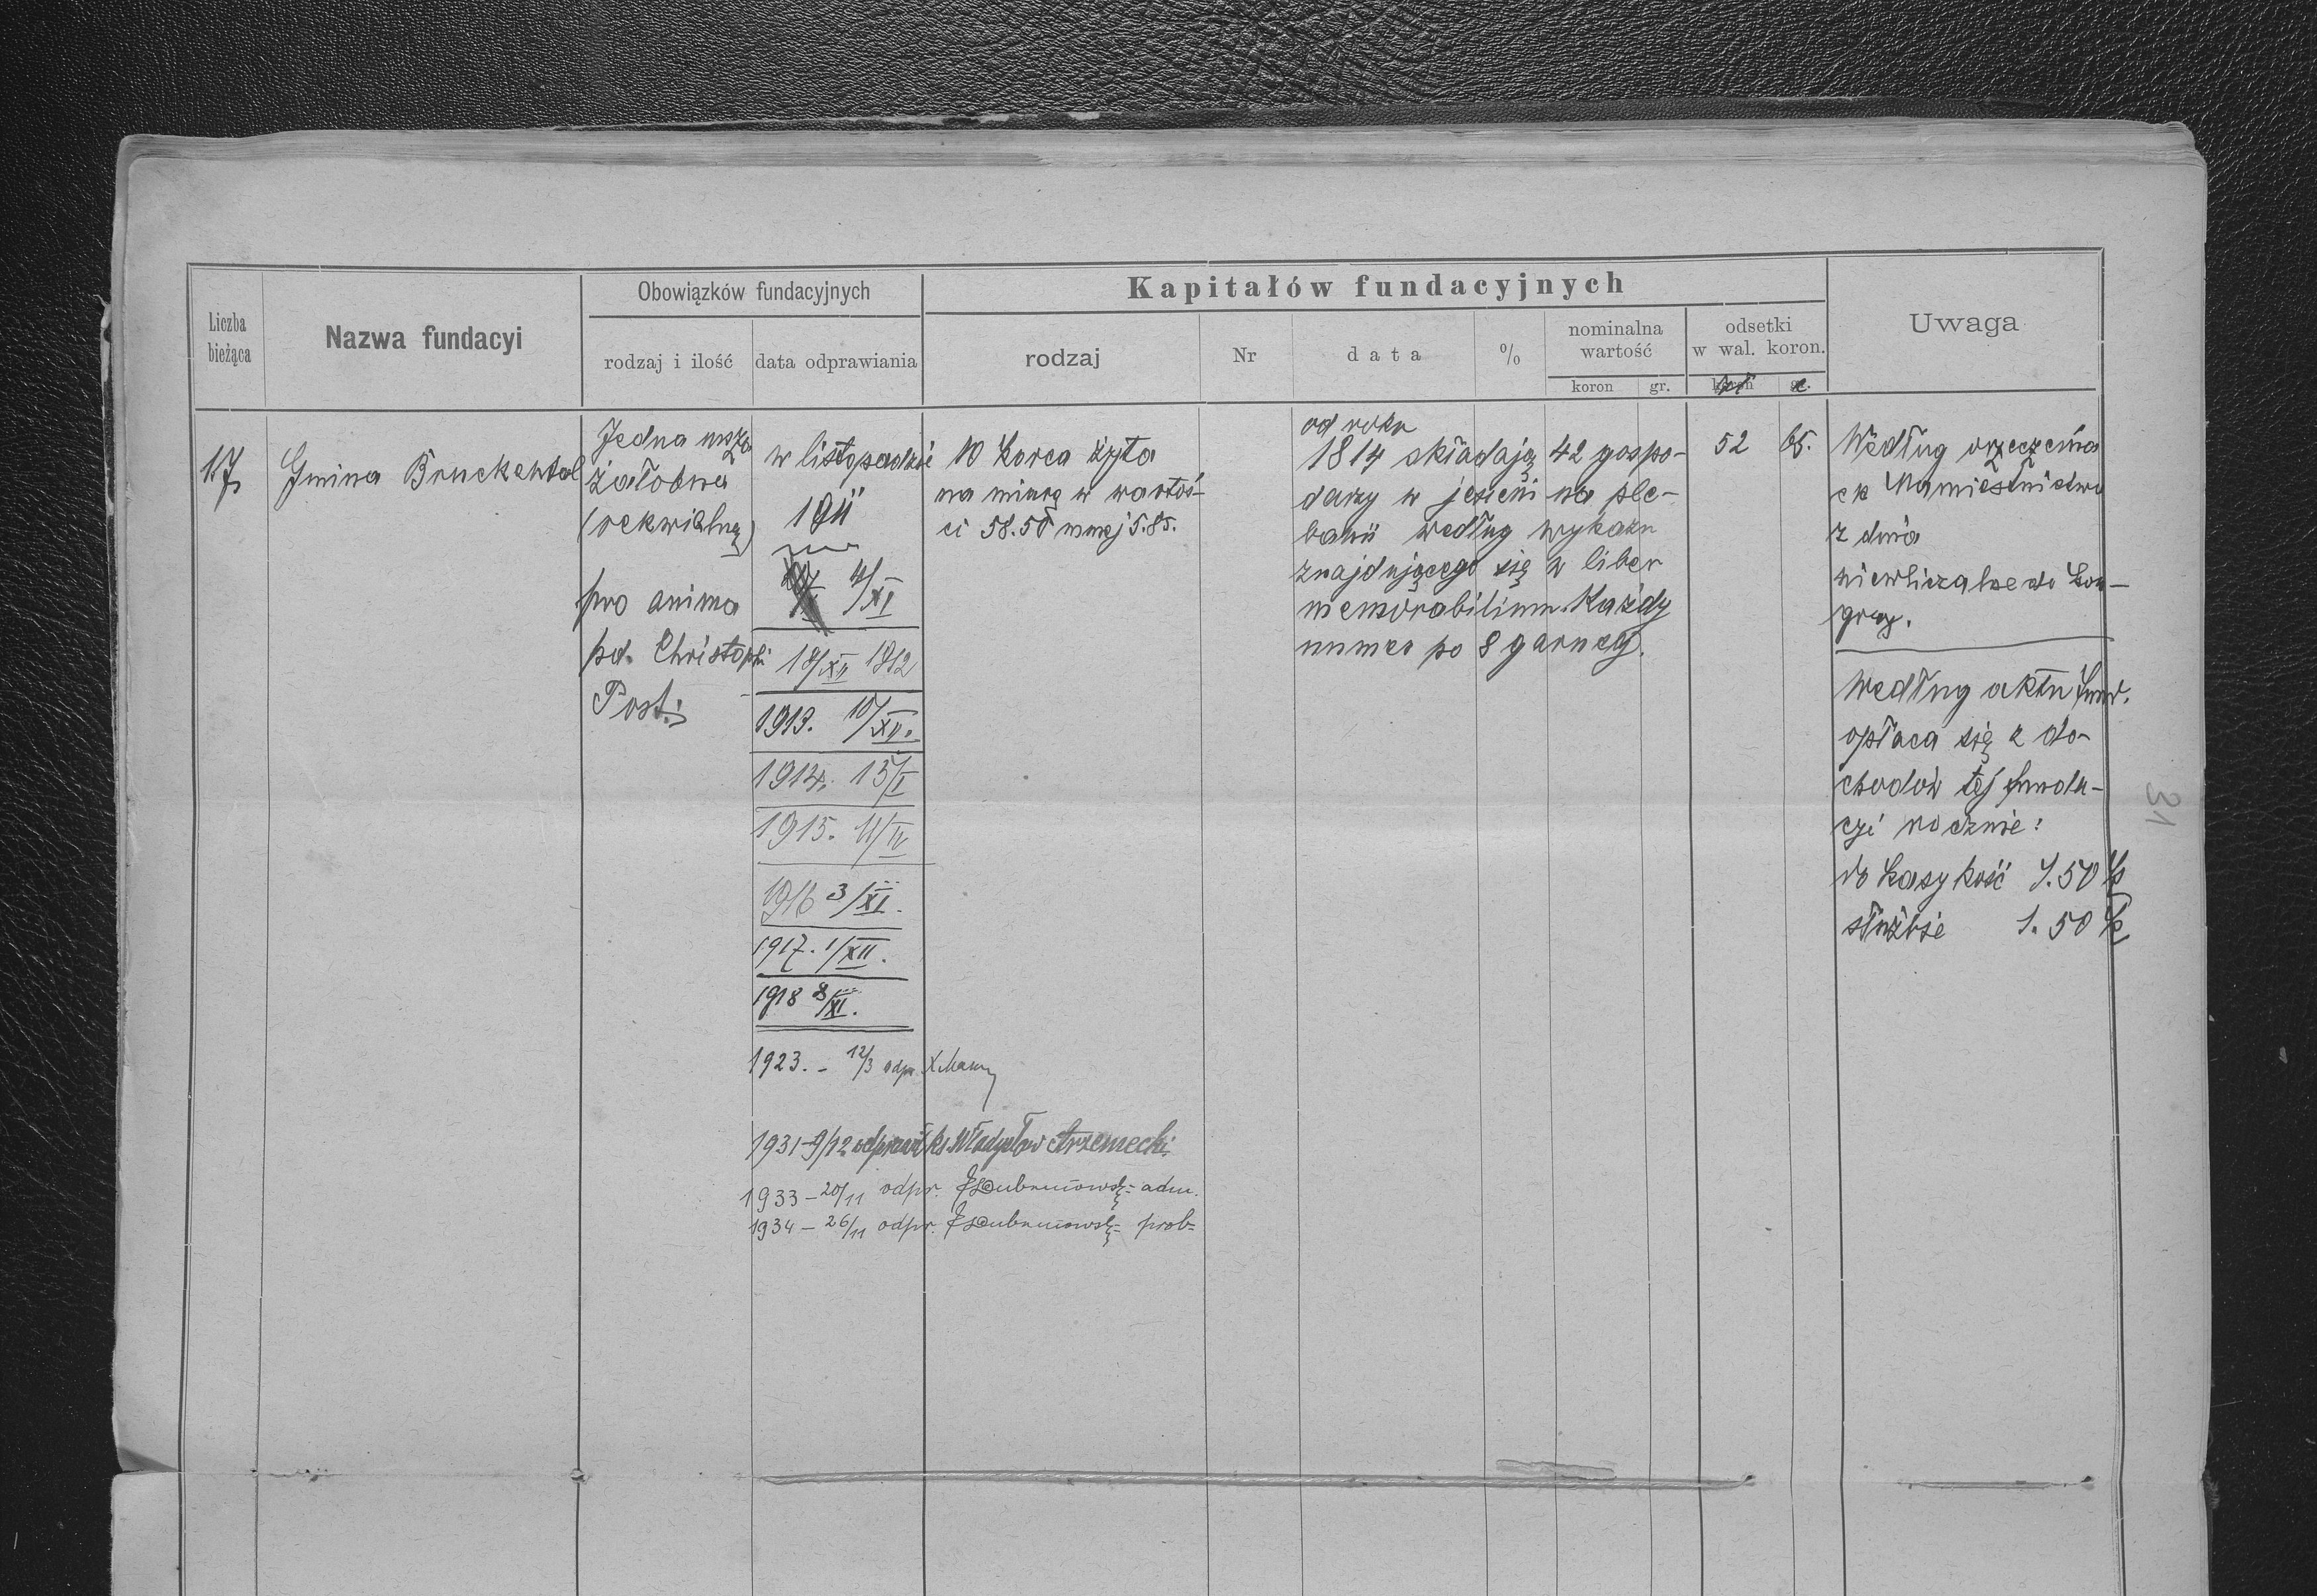 Liczba bieżąca
Nazwa fundacyi
Obowiązków fundacyjnych
rodzaj i ilość
data odprawiania
Kapitałów fundacyjnych
rodzaj
Nr
data
%
nominalna wartość
koron
gr.
odsetki
w wal. koron.
koron
gr.
Uwaga
17
Gmina Bruckental
Jedna msza
żałobna
(rekwialna)
pro anima
pd. Christophi
Post:
w listopadzie
1911
4/XI
18/XII 1912
1913. 10/XII.
1914. 15/I
1915. 11/IV
1916 3/XI.
1917. 1/XII.
1918 8/XI.
1923. - 12/3 odpr.
1931-9/12 odprawił ks. Władysław
1933 - 20/11 odpr. adm.
1934 - 26/11 odpr. prob-
10 korca żyta
na miarę w wartoś-
ci 58.50 mniej 5.85.
od roku
1814 składają 42 gospo-
darzy w jesieni na ple-
banii według wykazu
znajdującego się w liber
memorabilium. Każdy
numer po 8 garncy.
52 65.
Według orzeczenia
ck Namiestnictwa
z dnia
niewliczalne do kon-
gruy.
Według aktu fund.
opłaca się z do-
chodów tej funda-
cyi rocznie:
do kasy kość 1.50 k
służbie 1.50 k
31